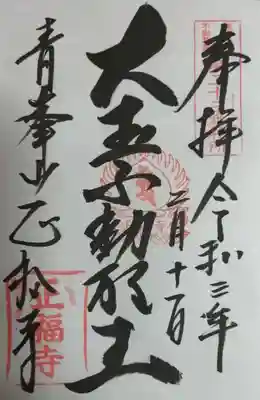 奉拝
令和三年
二月十一日
大聖不動明王
青峯山正福寺
正福寺